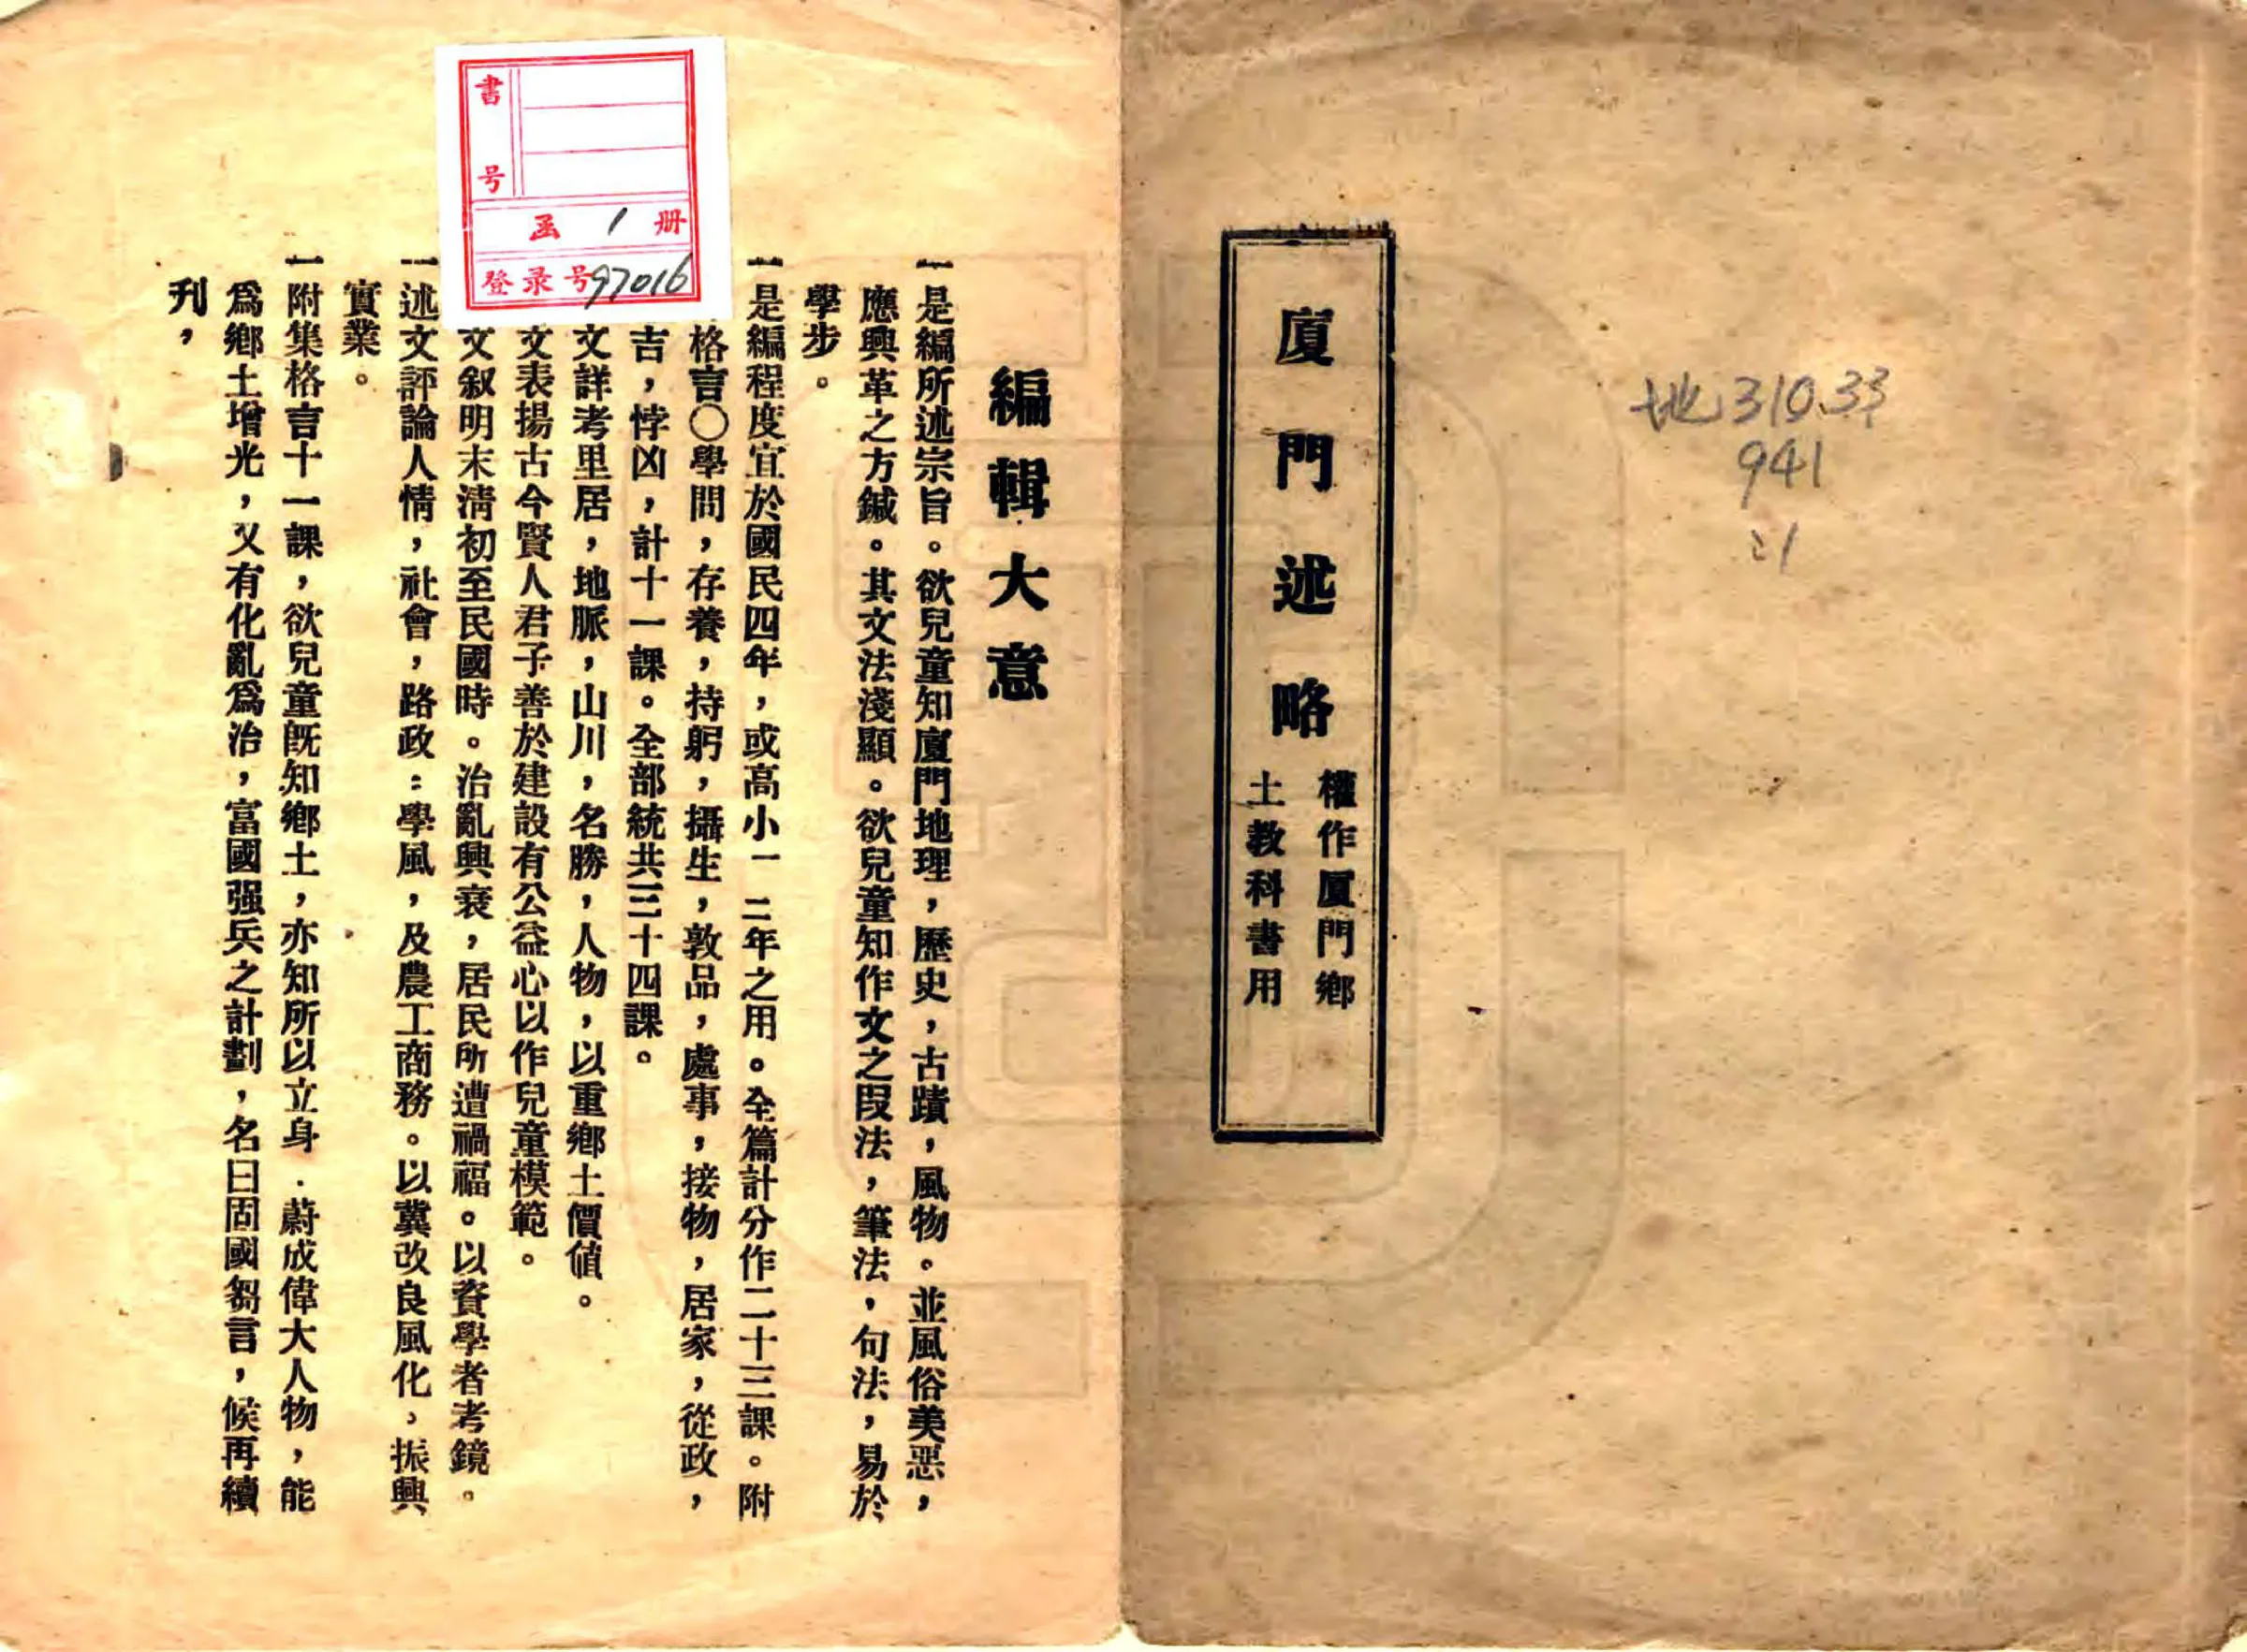 地310.33
941
:1
廈門述略
權作厦門鄉
土教科書用
編輯大意
一是編所述宗旨。欲兒童知廈門地理，歷史，古蹟，風物。並風俗美惡，
應興革之方鍼。其文法淺顯。欲兒童知作文之段法，筆法，句法，易於
學步。
一是編程度宜於國民四年，或高小一二年之用。全篇計分作二十三課。附
格言○學問，存養，持躬，攝生，敦品，處事，接物，居家，從政，
吉，悖凶，計十一課。全部統共三十四課。
文詳考里居，地脈，山川，名勝，人物，以重鄉土價值。
文表揚古今賢人君子善於建設有公益心以作兒童模範。
文叙明末清初至民國時。治亂興衰，居民所遭禍福。以資學者考鏡。
一述文評論人情，社會，路政：學風，及農工商務。以冀改良風化，振興
實業。
一附集格言十一課，欲兒童既知鄉土，亦知所以立身．蔚成偉大人物，能
爲鄉土增光，又有化亂爲治，富國强兵之計劃，名曰固國芻言，候再續
刊，
書号
函 1 册
登录号97016